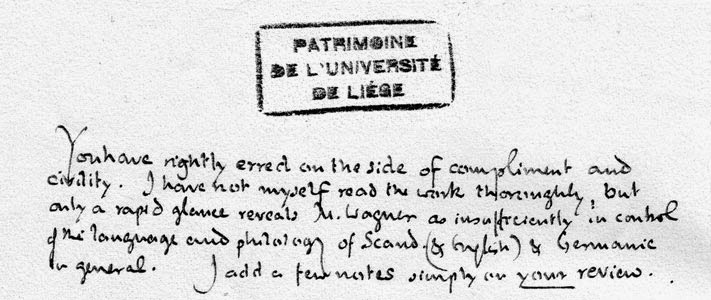 PATRIMOINE
DE L'UNIVERSITÉ
DE LIÉGE
You have rightly erred on the side of compliment and
civility. I have not myself read the work thoroughly, but
only a rapid glance reveals M. Wagner as insufficiently in control
of the language and philology of Scand. (& English) & Germanic
in general. I add a few notes simply on your review.